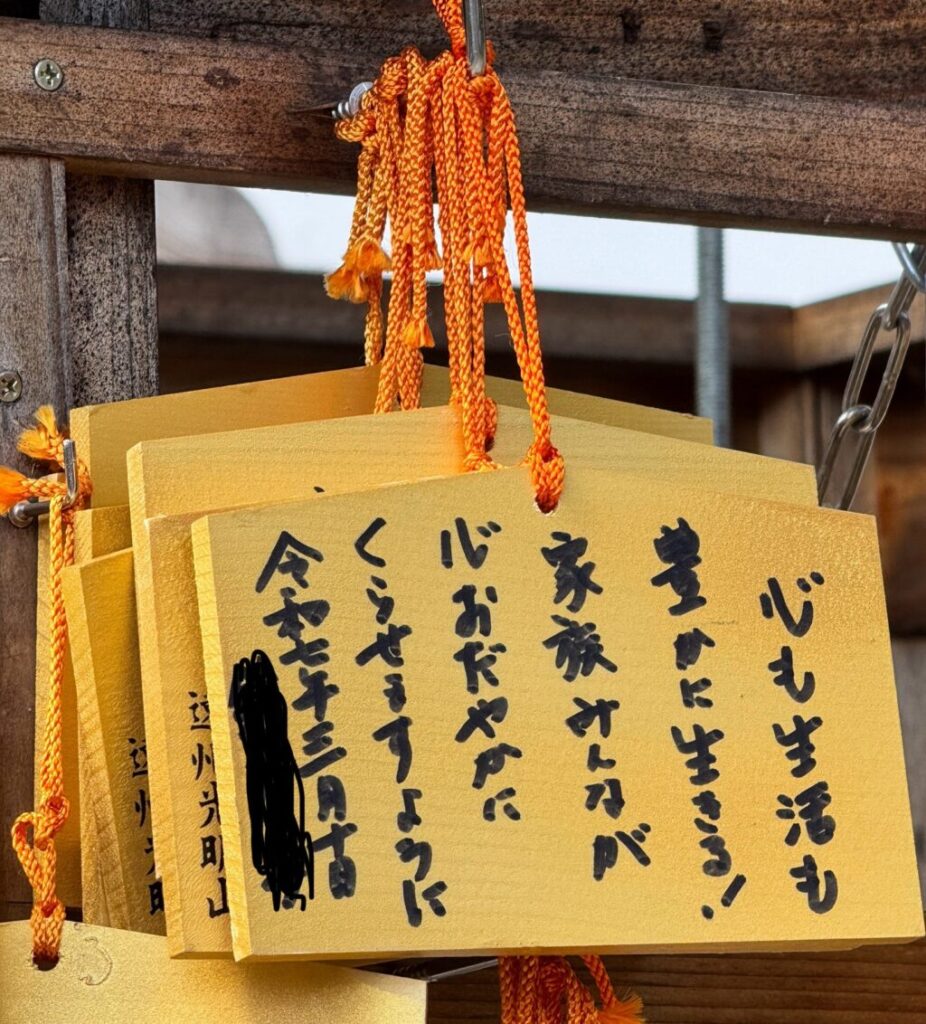 心も生活も
豊かに生きる!
家族みんなが
心おだやかに
くらせますように
令和七年三月十日
遠州光明山
遠州光明